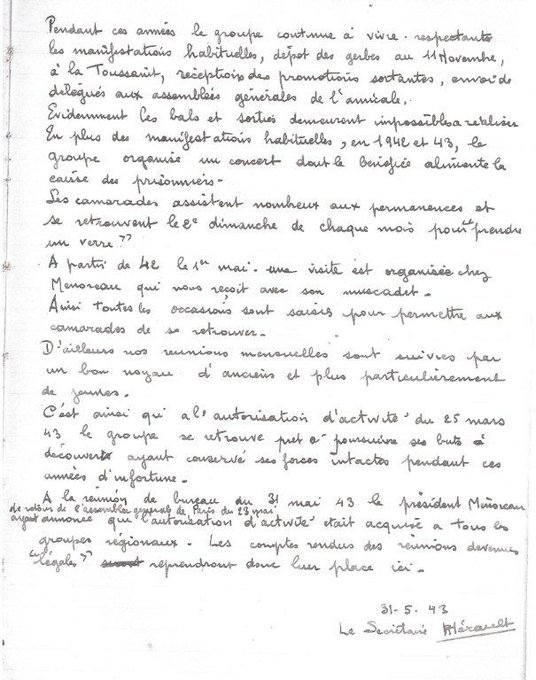 Pendant ces années le groupe continue à vivre. respectant
les manifestations habituelles, dépot des gerbes au 11 Novembre,
à la Toussaint, réceptions des promotions sortantes, envoi de
délégués aux assemblées générales de l'amicale.
Evidemment les bals et sorties demeurent impossibles a réaliser
En plus des manifestations habituelles, en 1942 et 43, le
groupe organise un concert dont le bénéfice alimente la
caisse des prisonniers-
Les camarades assistent nombreux aux permanences et
se retrouvent le 2e dimanche de chaque mois pour "prendre
un verre"
A partir de 42 le 1er mai. une visite est organisée chez
Menoreau qui nous reçoit avec son muscadet.
Ainsi toutes les occasions sont saisies pour permettre aux
camarades de se retrouver.
D'ailleurs nos reunions mensuelles sont suivies par
un bon noyau d'anciens et plus particulièrement
de jeunes.
C'est ainsi qu'a l'autorisation d'activité du 25 mars
43 le groupe se retrouve pret à poursuivre ses buts à
découvert ayant conservé ses forces intactes pendant ces
années d'infortune.
A la réunion de bureau du 31 mai 43 le président Menoreau
de retour de l'assemblée générale de Paris du 23 mai
ayant annoncé que l'autorisation d'activité etait acquise a tous les
groupes régionaux. Les comptes rendus des reunions devenues
"légales" reprendront donc leur place ici.
31-5-43
Le Secrétaire Hérault